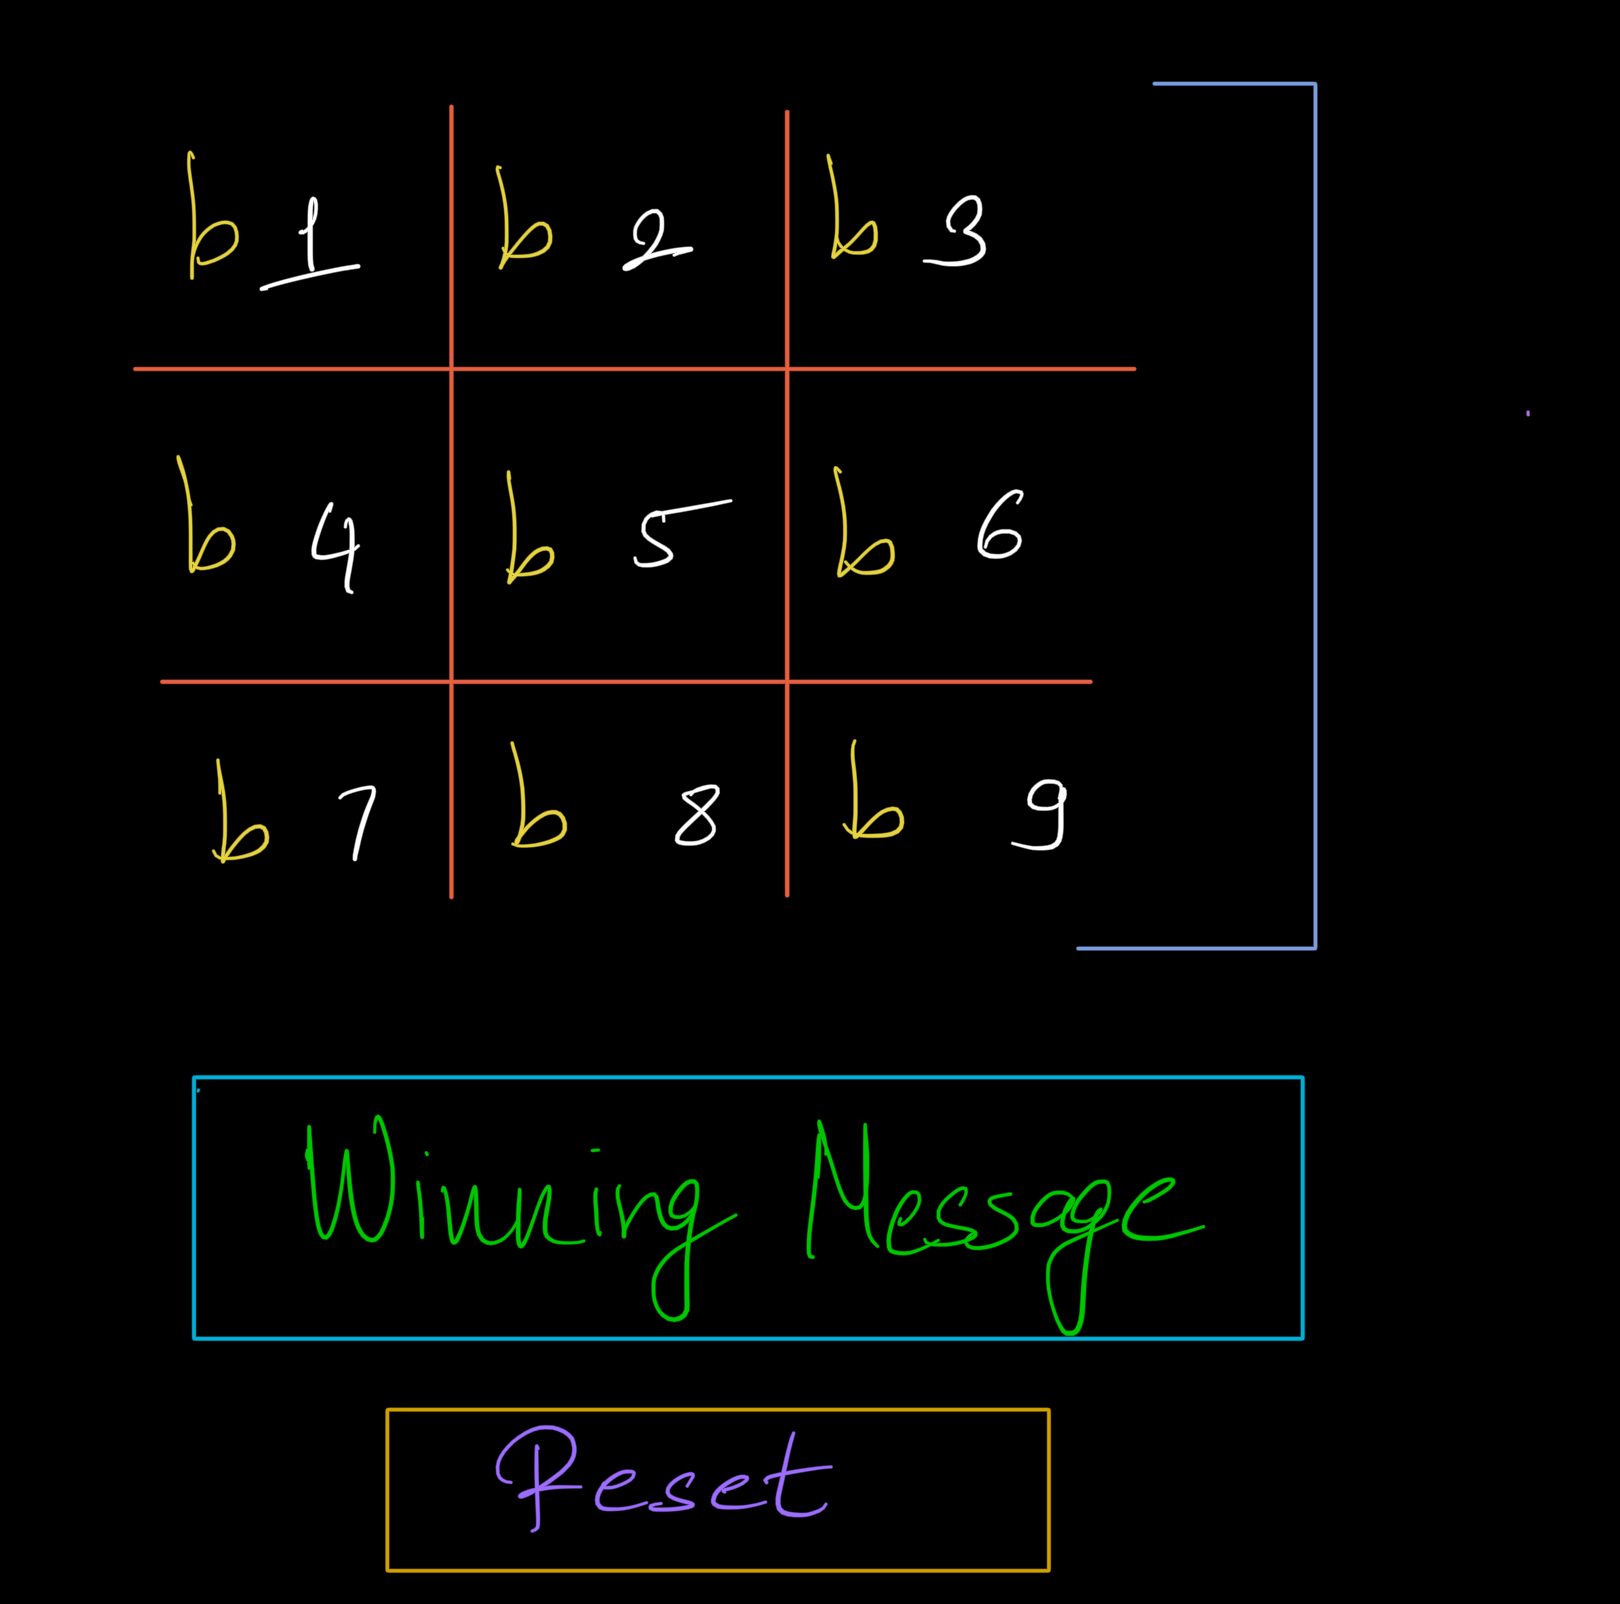 b 1 b 2 b 3
b 4 b 5 b 6
b 7 b 8 b 9
Winning Message
Reset